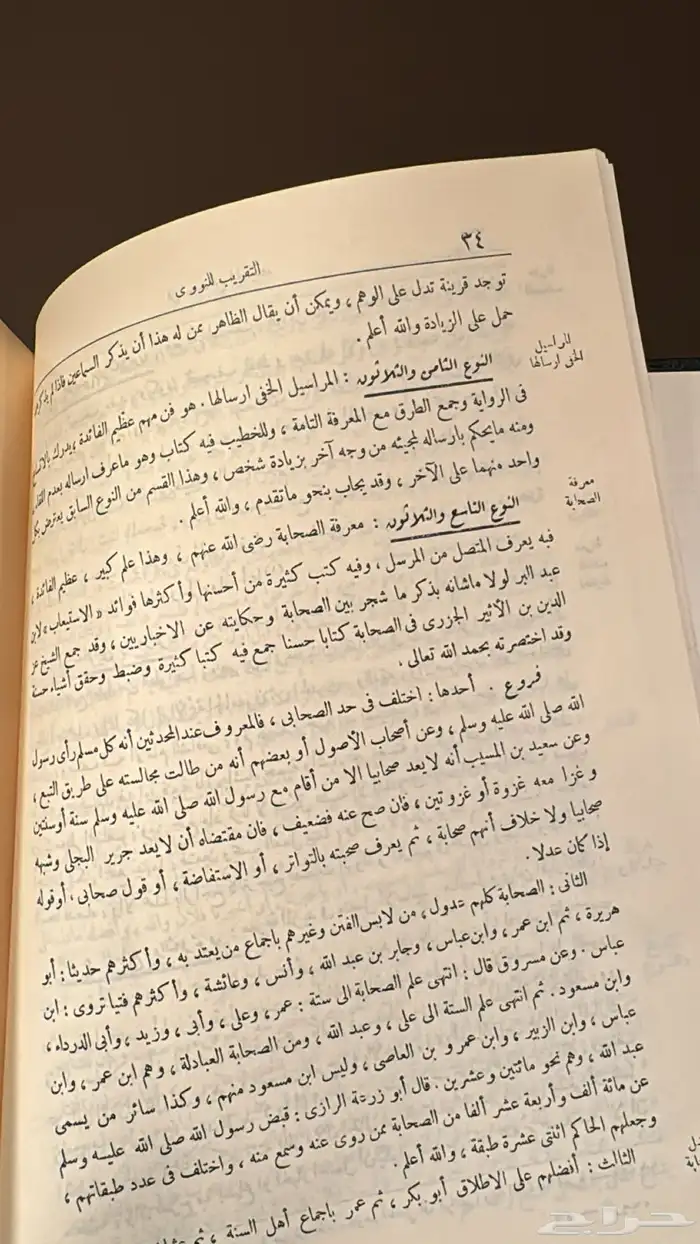 ٣٤
التقريب للنووى
توجد قرينة تدل على الوهم ، ويمكن أن يقال الظاهر ممن له هذا أن يذكر السماعين فاذا لم
حمل على الزيادة والله أعلم .
المراسيل
الخفى ارسالها
النوع الثامن والثلاثون : المراسيل الخفى ارسالها . هو فن مهم عظيم الفائدة ، يدرك
فى الرواية وجمع الطرق مع المعرفة التامة ، وللخطيب فيه كتاب وهو ماعرف ارساله بعدم
ومنه مايحكم بارساله لمجيئه من وجه آخر بزيادة شخص ، وهذا القسم من النوع السابق يعترض بكل
واحد منهما على الآخر ، وقد يجاب بنحو ماتقدم ، والله أعلم .
معرفة
الصحابة
النوع التاسع والثلاثون : معرفة الصحابة رضى الله عنهم ، وهذا علم كبير ، عظيم الفائدة ،
فبه يعرف المتصل من المرسل ، وفيه كتب كثيرة من أحسنها وأكثرها فوائد « الاستيعاب » لابن
عبد البر لولا ماشانه بذكر ما شجر بين الصحابة وحكايته عن الاخباريين ، وقد جمع الشيخ عز
الدين بن الأثير الجزرى فى الصحابة كتابا حسنا جمع فيه كتبا كثيرة وضبط وحقق أشياء حسنة
وقد اختصرته بحمد الله تعالى .
فروع . أحدها : اختلف فى حد الصحابى ، فالمعروف عند المحدثين أنه كل مسلم رأى رسول
الله صلى الله عليه وسلم ، وعن أصحاب الأصول أو بعضهم أنه من طالت مجالسته على طريق التبع ،
وعن سعيد بن المسيب أنه لايعد صحابيا الا من أقام مع رسول الله صلى الله عليه وسلم سنة أوسنتين
وغزا معه غزوة أو غزوتين ، فان صح عنه فضعيف ، فان مقتضاه أن لايعد جرير البجلى وشبهه
صحابيا ولا خلاف أنهم صحابة ، ثم يعرف صحبته بالتواتر ، أو الاستفاضة ، أو قول صحابى ، أوقوله
إذا كان عدلا .
الثانى : الصحابة كلهم عدول ، من لابس الفتن وغيرهم باجماع من يعتد به ، وأكثرهم حديثا : أبو
هريرة ، ثم ابن عمر ، وابن عباس ، وجابر بن عبد الله ، وأنس ، وعائشة ، وأكثرهم فتيا تروى : ابن
عباس . وعن مسروق قال : انتهى علم الصحابة الى ستة : عمر ، وعلى ، وأبى ، وزيد ، وأبى الدرداء ،
وابن مسعود . ثم انتهى علم الستة الى على ، وعبد الله ، ومن الصحابة العبادلة ، وهم ابن عمر ، وابن
عباس ، وابن الزبير ، وابن عمرو بن العاصى ، وليس ابن مسعود منهم ، وكذا سائر من يسمى
عبد الله ، وهم نحو مائتين وعشرين . قال أبو زرعة الرازى : قبض رسول الله صلى الله عليه وسلم
عن مائة ألف وأربعة عشر ألفا من الصحابة ممن روى عنه وسمع منه ، واختلف فى عدد طبقاتهم ،
وجعلهم الحاكم اثنتى عشرة طبقة ، والله أعلم .
الثالث : أفضلهم على الاطلاق أبو بكر ، ثم عمر باجماع أهل السنة ، ثم
حراج